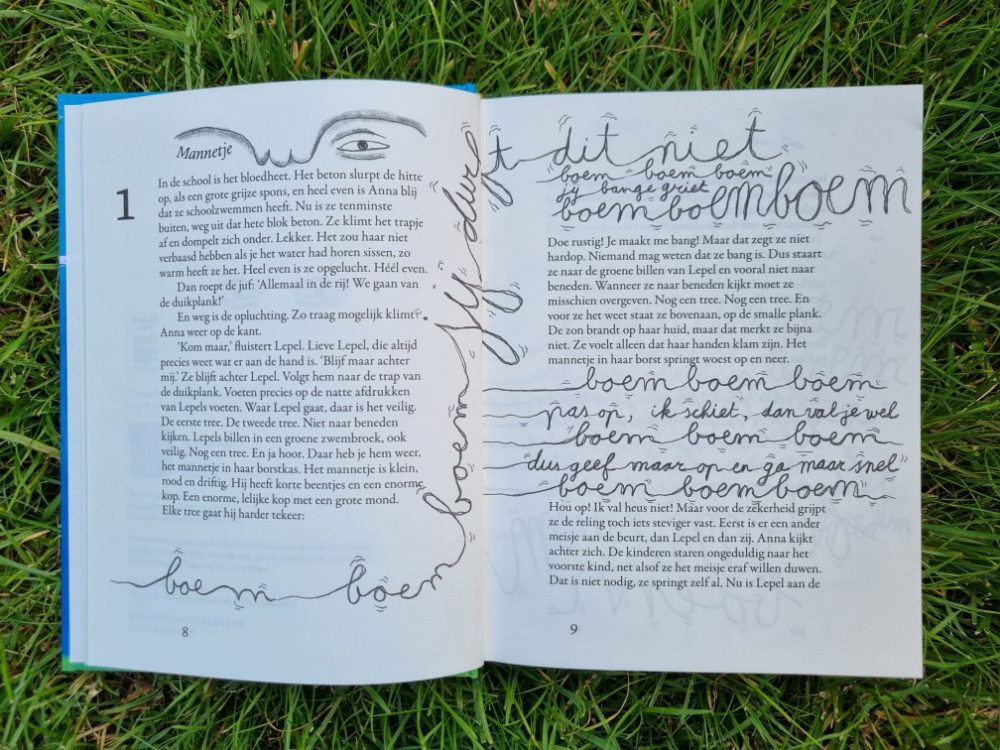 Mannetje
1
In de school is het bloedheet. Het beton slurpt de hitte
op, als een grote grijze spons, en heel even is Anna blij
dat ze schoolzwemmen heeft. Nu is ze tenminste
buiten, weg uit dat hete blok beton. Ze klimt het trapje
af en dompelt zich onder. Lekker. Het zou haar niet
verbaasd hebben als je het water had horen sissen, zo
warm heeft ze het. Heel even is ze opgelucht. Héél even.
Dan roept de juf: ‘Allemaal in de rij! We gaan van
de duikplank!’
En weg is de opluchting. Zo traag mogelijk klimt
Anna weer op de kant.
‘Kom maar,’ fluistert Lepel. Lieve Lepel, die altijd
precies weet wat er aan de hand is. ‘Blijf maar achter
mij.’ Ze blijft achter Lepel. Volgt hem naar de trap van
de duikplank. Voeten precies op de natte afdrukken
van Lepels voeten. Waar Lepel gaat, daar is het veilig.
De eerste tree. De tweede tree. Niet naar beneden
kijken. Lepels billen in een groene zwembroek, ook
veilig. Nog een tree. En ja hoor. Daar heb je hem weer,
het mannetje in haar borstkas. Het mannetje is klein,
rood en driftig. Hij heeft korte beentjes en een enorme
kop. Een enorme, lelijke kop met een grote mond.
Elke tree gaat hij harder tekeer:
boem boem boem jij durft dit niet
8
boem boem boem
jij bange griet
boem boem boem
Doe rustig! Je maakt me bang! Maar dat zegt ze niet
hardop. Niemand mag weten dat ze bang is. Dus staart
ze naar de groene billen van Lepel en vooral niet naar
beneden. Wanneer ze naar beneden kijkt moet ze
misschien overgeven. Nog een tree. Nog een tree. En
voor ze het weet staat ze bovenaan, op de smalle plank.
De zon brandt op haar huid, maar dat merkt ze bijna
niet. Ze voelt alleen dat haar handen klam zijn. Het
mannetje in haar borst springt woest op en neer.
boem boem boem
pas op, ik schiet, dan val je wel
boem boem boem
dus geef maar op en ga maar snel
boem boem boem
Hou op! Ik val heus niet! Maar voor de zekerheid grijpt
ze de reling toch iets steviger vast. Eerst is er een ander
meisje aan de beurt, dan Lepel en dan zij. Anna kijkt
achter zich. De kinderen staren ongeduldig naar het
voorste kind, net alsof ze het meisje eraf willen duwen.
Dat is niet nodig, ze springt zelf al. Nu is Lepel aan de
9